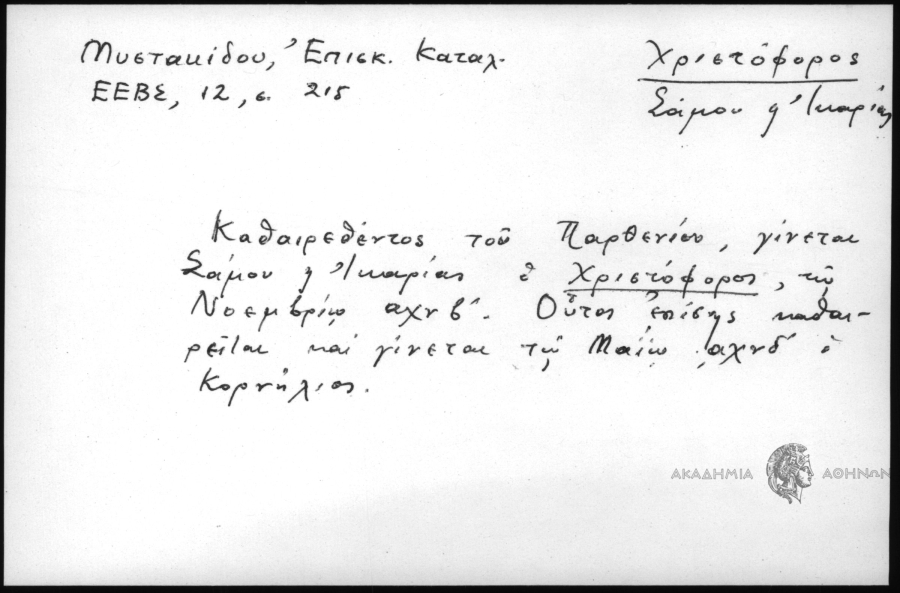 Μυστακίδου, Ἐπισκ. Καταλ.
ΕΕΒΣ, 12, σ. 215
Χριστόφορος
Σάμου ϗ Ἰκαρίας
Καθαιρεθέντος τοῦ Παρθενίου, γίνεται
Σάμου ϗ Ἰκαρίας ὁ Χριστόφορος, τῷ
Νοεμβρίῳ αχνβ΄. Οὗτος ἐπίσης καθαι-
ρεῖται καὶ γίνεται τῷ Μαΐῳ ͵αχνδ΄ ὁ
Κορνήλιος.
ΑΚΑΔΗΜΙΑ ΑΘΗΝΩΝ